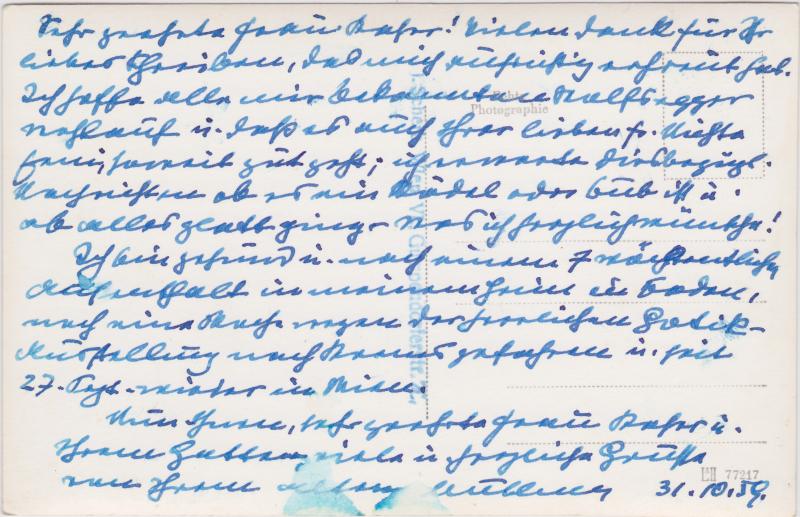 Sehr geehrte Frau Kaher! Vielen Dank für Ihr
liebes Schreiben, das mich aufrichtig erfreut hat.
Ich hoffe alle mir bekannten Wolfsegger
wohlauf u. daß es auch Ihrer lieben Fr. Nichte
soweit gut geht; ich erwarte diesbezügl.
Nachrichten ob es ein Mädel oder Bub ist u.
ob alles glatt ging was ich herzlich wünsche!
Ich bin gesund u. nach einem 7 wöchentlichen
Aufenthalt in meinem Heim in Baden,
noch eine Woche wegen der herrlichen Gotik-
Ausstellung nach Krems gefahren u. seit
27. Sept. wieder in Wien.
Nun Ihnen, sehr geehrte Frau Kaher u.
Ihrem Gatten viele u. herzliche Grüsse
von Ihrem alten
31.10.59.
Echte
Photographie
77217